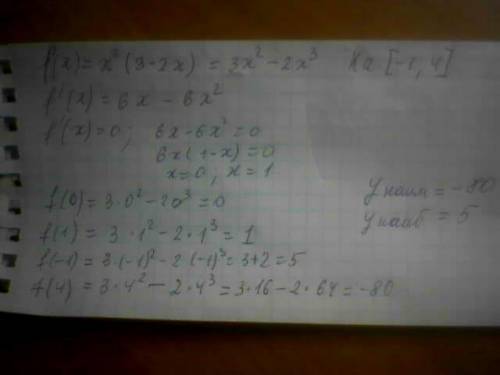 f(x) = x²(3-2x) = 3x² - 2x³ На [-1, 4]
f'(x) = 6x - 6x²
f'(x) = 0; 6x - 6x² = 0
6x(1-x) = 0
x=0, x=1
f(0) = 3·0² - 2·0³ = 0
f(1) = 3·1² - 2·1³ = 1
f(-1) = 3·(-1)² - 2·(-1)³ = 3+2 = 5
f(4) = 3·4² - 2·4³ = 3·16 - 2·64 = -80
y наим = -80
y наиб = 5